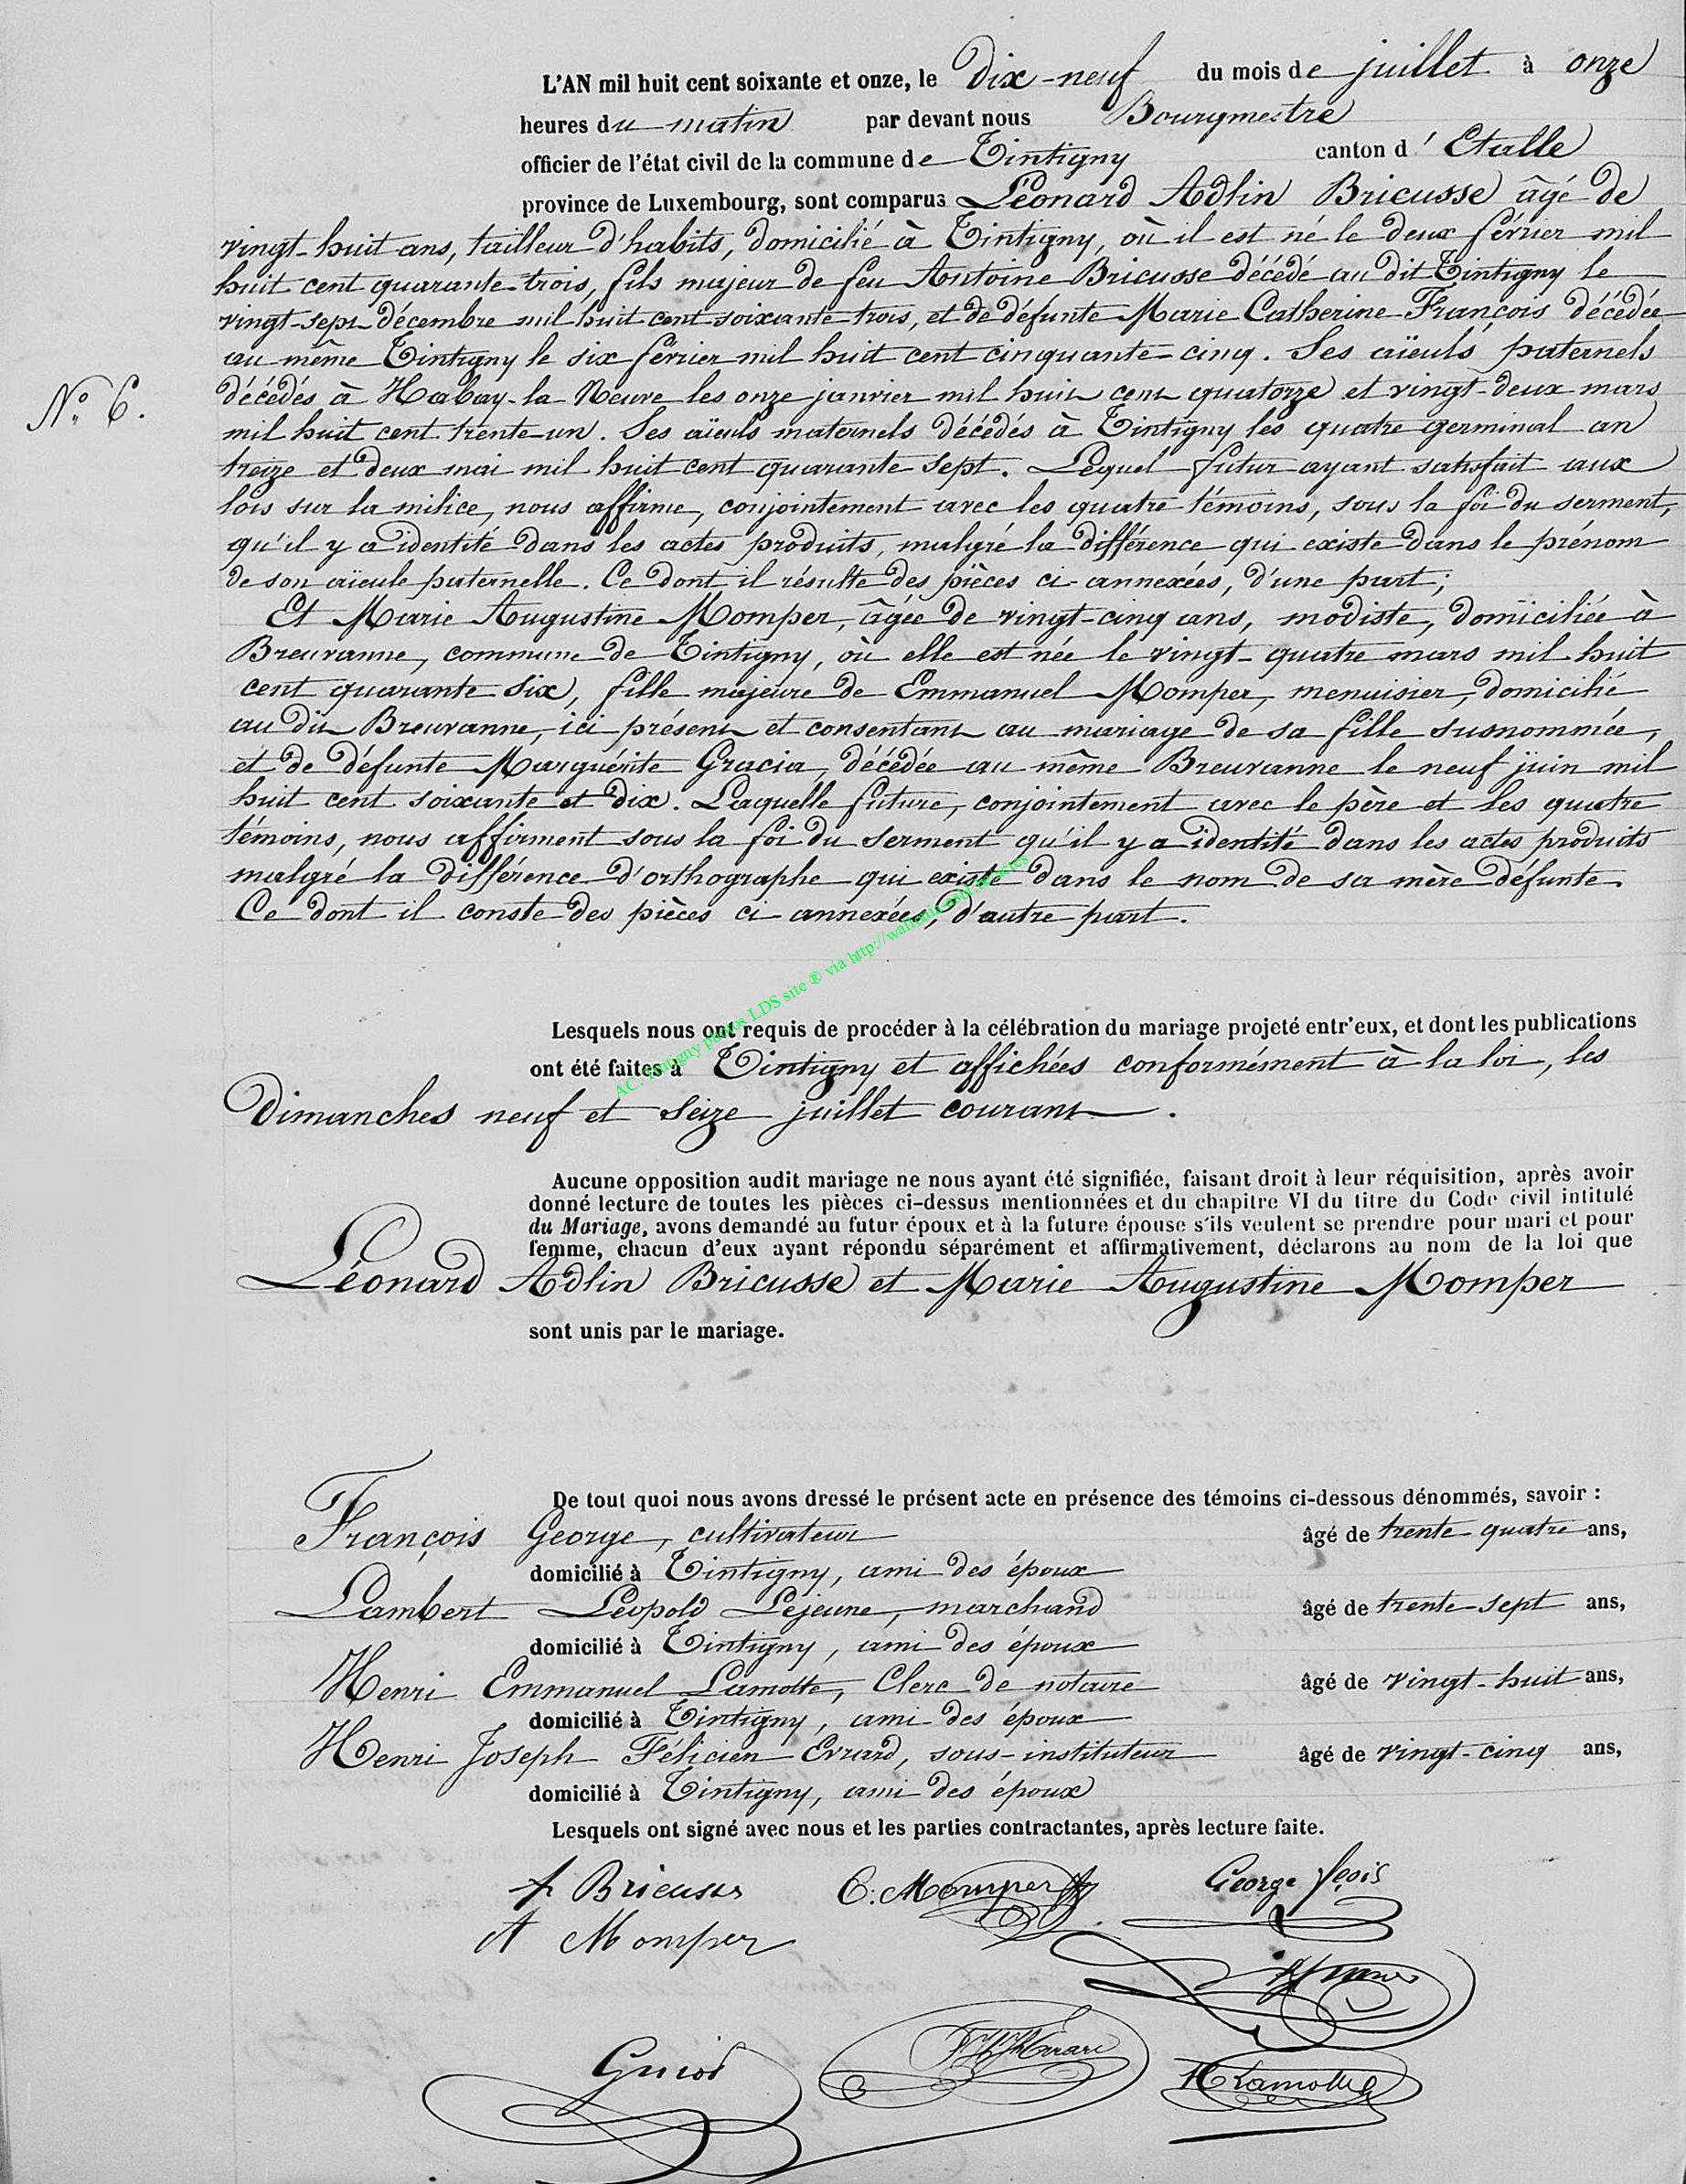 L'AN mil huit cent soixante et onze, le Dix-neuf du mois de juillet à onze
heures du matin par devant nous Bourgmestre
officier de l'état civil de la commune de Tintigny canton d'Etalle
province de Luxembourg, sont comparus Léonard Adlin Bricusse âgé de
vingt-huit ans, tailleur d'habits, domicilié à Tintigny, où il est né le deux février mil
huit cent quarante-trois, fils majeur de feu Antoine Bricusse décédé au dit Tintigny le
vingt-sept décembre mil huit cent soixante trois, et de défunte Marie Catherine François décédée
au même Tintigny le six février mil huit cent cinquante-cinq. Ses aïeuls paternels
N° 6.
décédés à Habay-la-Neuve les onze janvier mil huit cent quatorze et vingt-deux mars
mil huit cent trente-un. Ses aïeuls maternels décédés à Tintigny les quatre germinal an
treize et deux mai mil huit cent quarante sept. Lequel futur ayant satisfait aux
lois sur la milice, nous affirme, conjointement avec les quatre témoins, sous la foi du serment,
qu'il y a identité dans les actes produits, malgré la différence qui existe dans le prénom
de son aïeule paternelle. Ce dont il résulte des pièces ci-annexées, d'une part;
Et Marie Augustine Momper, âgée de vingt-cinq ans, modiste, domiciliée à
Breuvanne, commune de Tintigny, où elle est née le vingt-quatre mars mil huit
cent quarante six, fille majeure de Emmanuel Momper, menuisier, domicilié
au dit Breuvanne, ici présent et consentant au mariage de sa fille susnommée,
et de défunte Marguérite Gracia, décédée au même Breuvanne le neuf juin mil
huit cent soixante et dix. Laquelle future, conjointement avec le père et les quatre
témoins, nous affirment sous la foi du serment qu'il y a identité dans les actes produits
malgré la différence d'orthographe qui existe dans le nom de sa mère défunte.
Ce dont il conste des pièces ci annexées, d'autre part.
Lesquels nous ont requis de procéder à la célébration du mariage projeté entr'eux, et dont les publications
ont été faites à Tintigny et affichées conformément à la loi, les
Dimanches neuf et seize juillet courant.
Aucune opposition audit mariage ne nous ayant été signifiée, faisant droit à leur réquisition, après avoir
donné lecture de toutes les pièces ci-dessus mentionnées et du chapitre VI du titre du Code civil intitulé
du Mariage, avons demandé au futur époux et à la future épouse s'ils veulent se prendre pour mari et pour
femme, chacun d'eux ayant répondu séparément et affirmativement, déclarons au nom de la loi que
Léonard Adlin Bricusse et Marie Augustine Momper
sont unis par le mariage.
De tout quoi nous avons dressé le présent acte en présence des témoins ci-dessous dénommés, savoir :
François George, cultivateur âgé de trente-quatre ans,
domicilié à Tintigny, ami des époux
Lambert Léopold Lejeune, marchand âgé de trente-sept ans,
domicilié à Tintigny, ami des époux
Henri Emmanuel Lamotte, Clerc de notaire âgé de vingt-huit ans,
domicilié à Tintigny, ami des époux
Henri Joseph Félicien Evrard, sous-instituteur âgé de vingt-cinq ans,
domicilié à Tintigny, ami des époux
Lesquels ont signé avec nous et les parties contractantes, après lecture faite.
A Bricusse E. Momper George fçois
A Momper
Guiot
H Lamotte
AC. Tintigny photos LDS site ® via http://